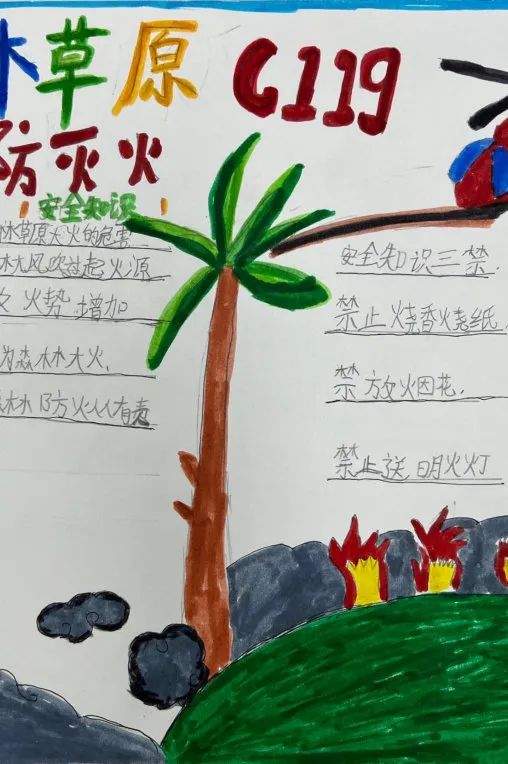 林草原 C119
防灭火
安全知识
林草原火的危害
林大风吹过起火源
火势增加
为森林大火,
森林防火人人有责
安全知识三禁,
禁止烧香烧纸,
禁放火烟花,
禁止送明火灯